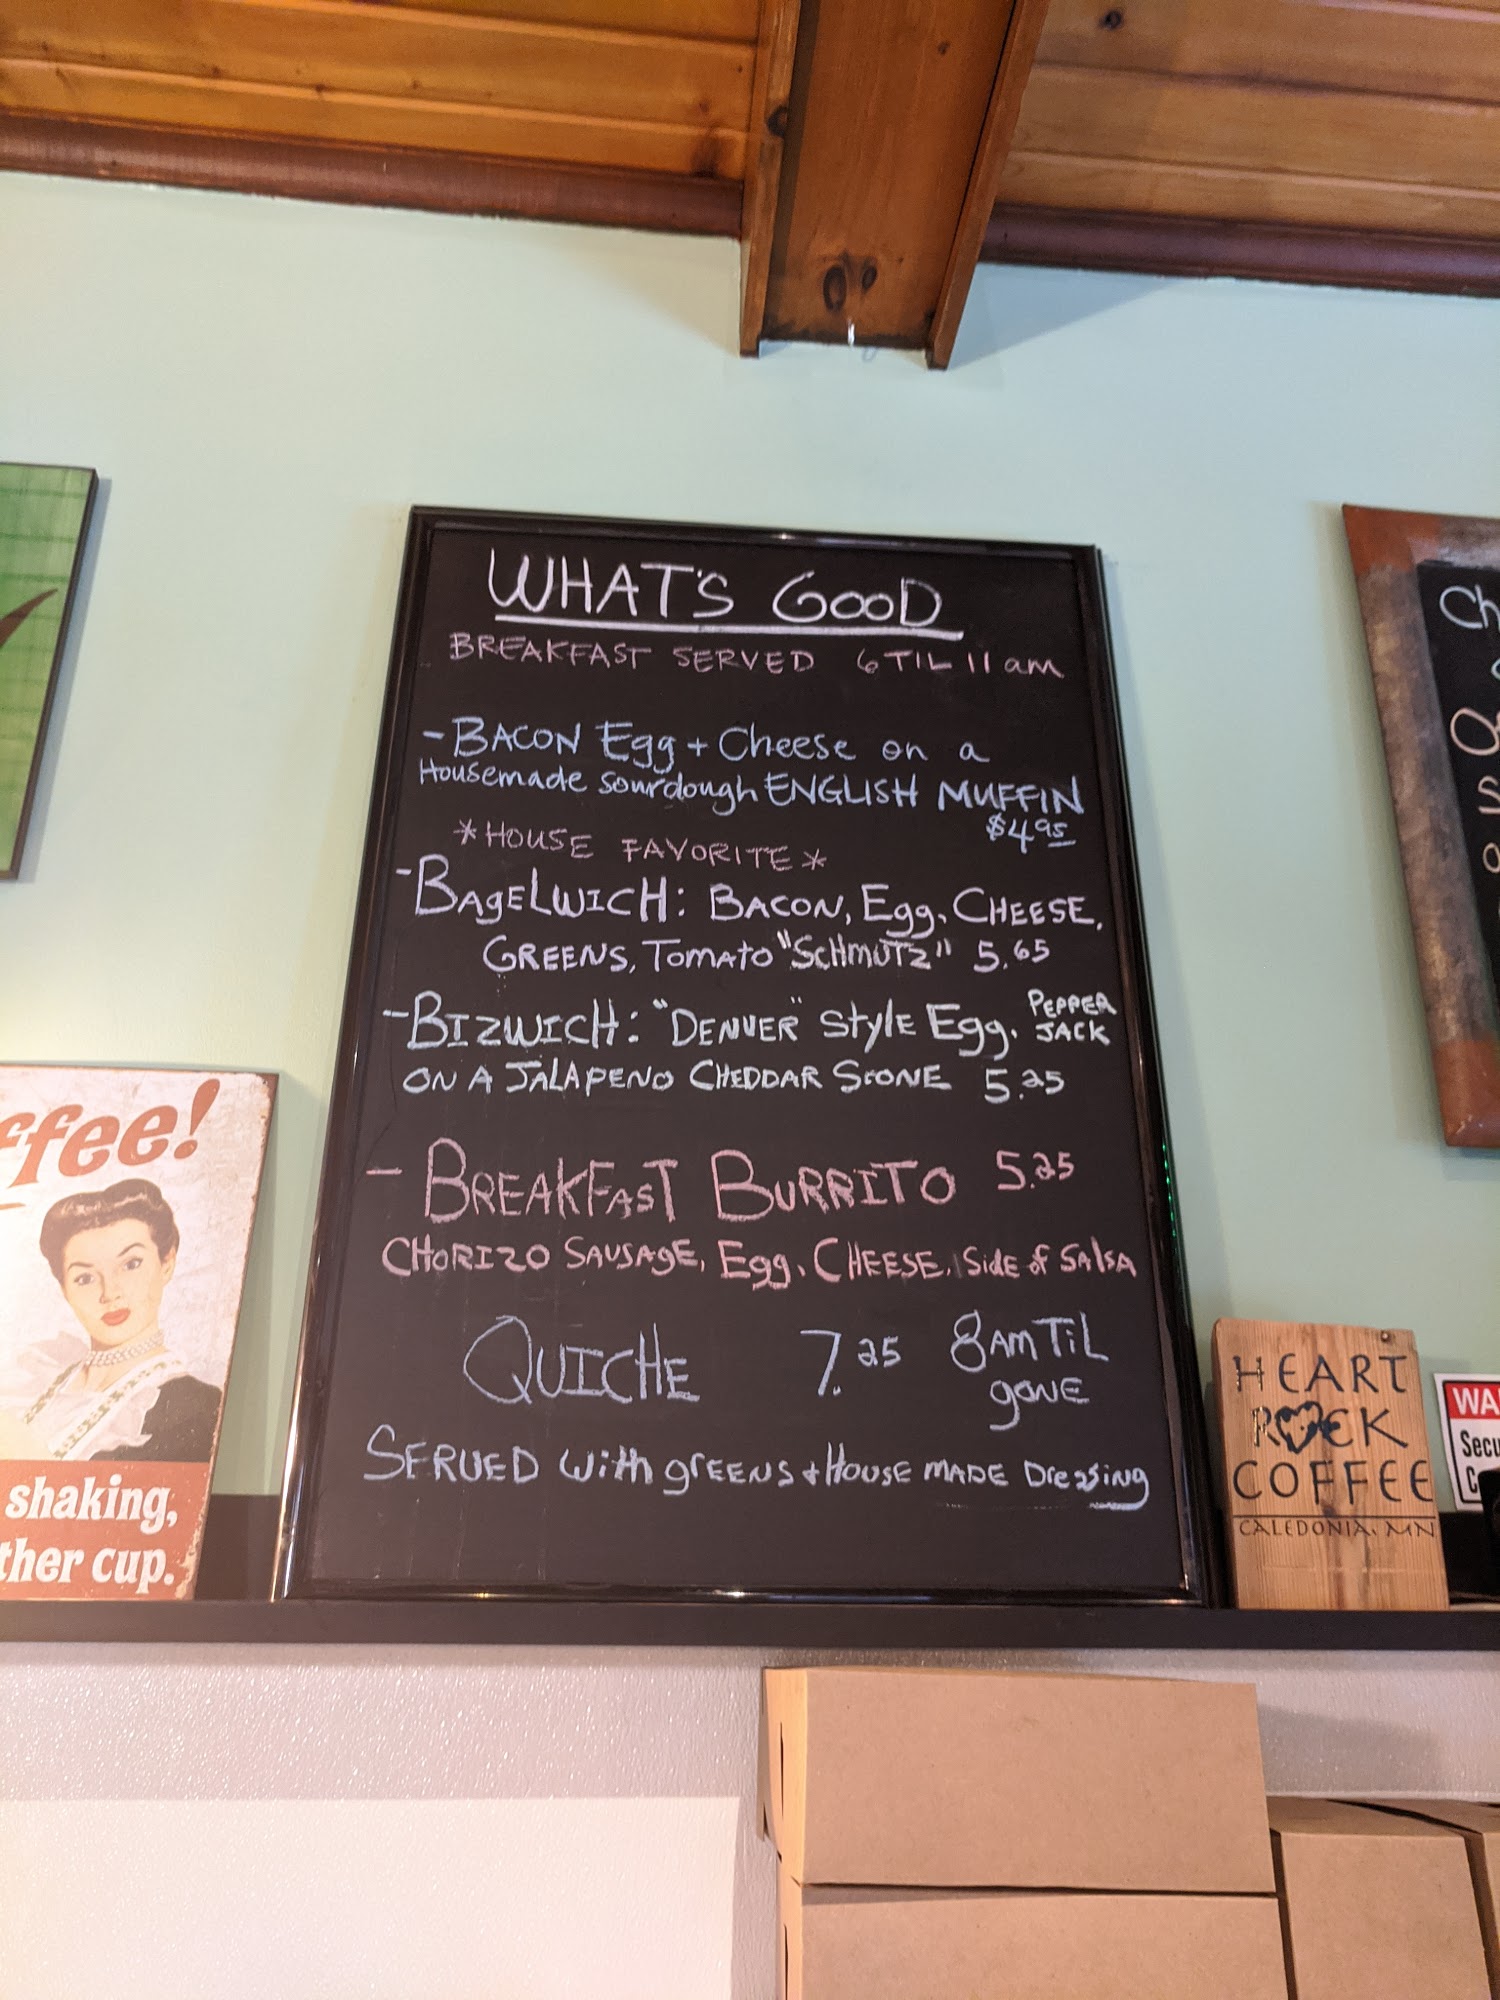 WHAT'S GOOD
BREAKFAST SERVED 6 TIL 11 am
- BACON Egg + Cheese on a
Housemade sourdough ENGLISH MUFFIN
$4.95
*HOUSE FAVORITE*
- BAgELWICH: BACON, Egg, CHEESE,
GREENS, TOMATO "SCHMUTZ" 5.65
- BIZWICH: "DENVER" StylE Egg, PEPPER
JACK
ON A JALAPENO CHEDDAR SCONE 5.25
- BREAKFAST BURRITO 5.25
CHORIZO SAUSAgE, Egg, CHEESE, Side of SAlSA
QUICHE 7.25 8AM TiL
gONE
SERVED with grEENS + HOUSE MADE Dressing
ffee!
shaking,
ther cup.
HEART
ROCK
COFFEE
CALEDONIA, MN
Ch
WA
Secu